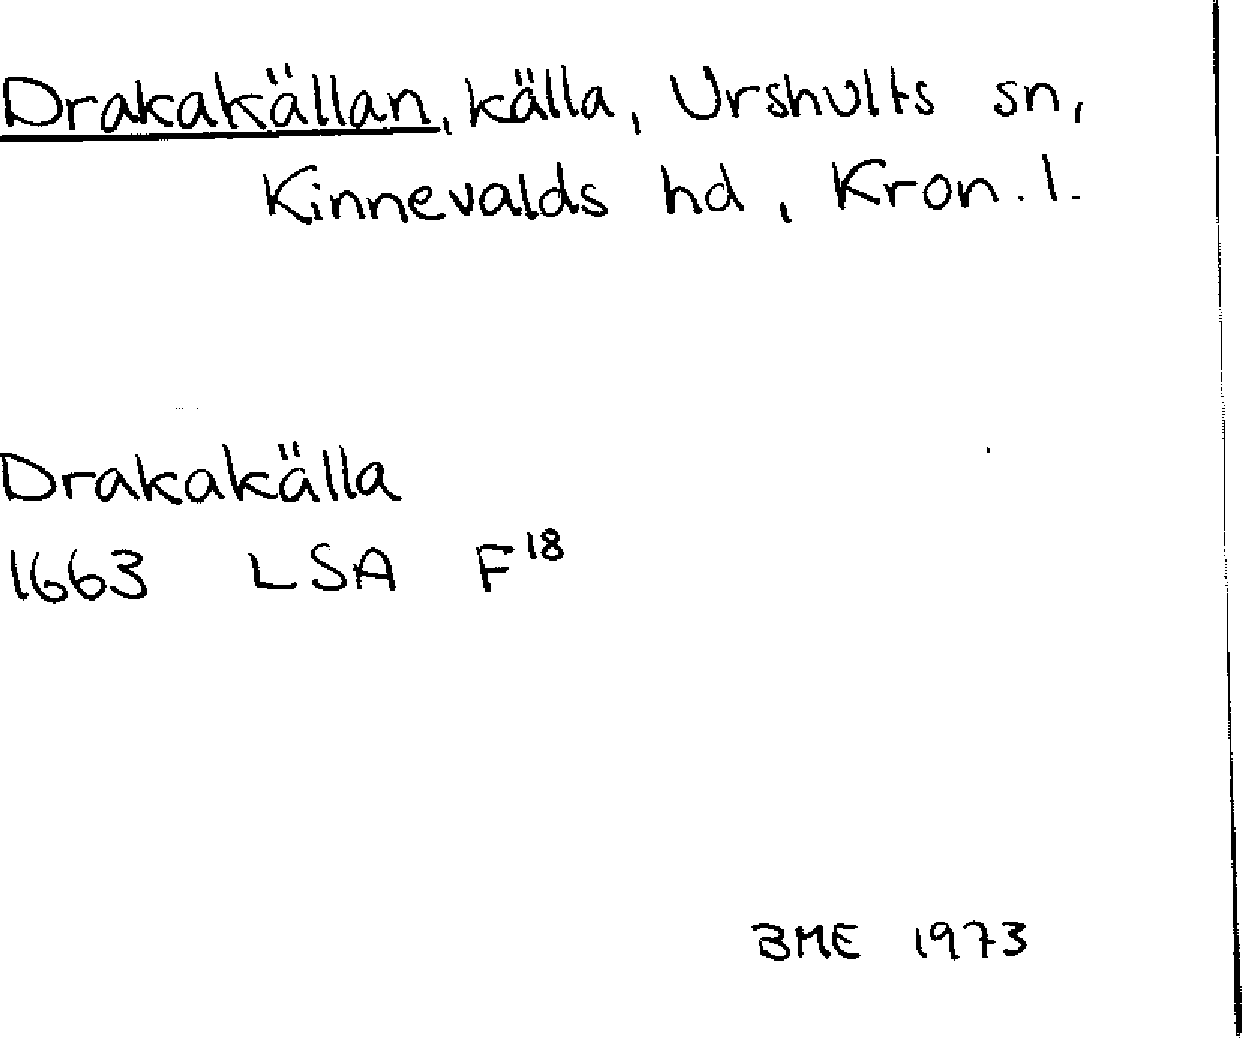 Drakakällan, källa, Urshults sn,
Kinnevalds hd, Kron. l.
Drakakälla
1663 LSA F18
BME 1973